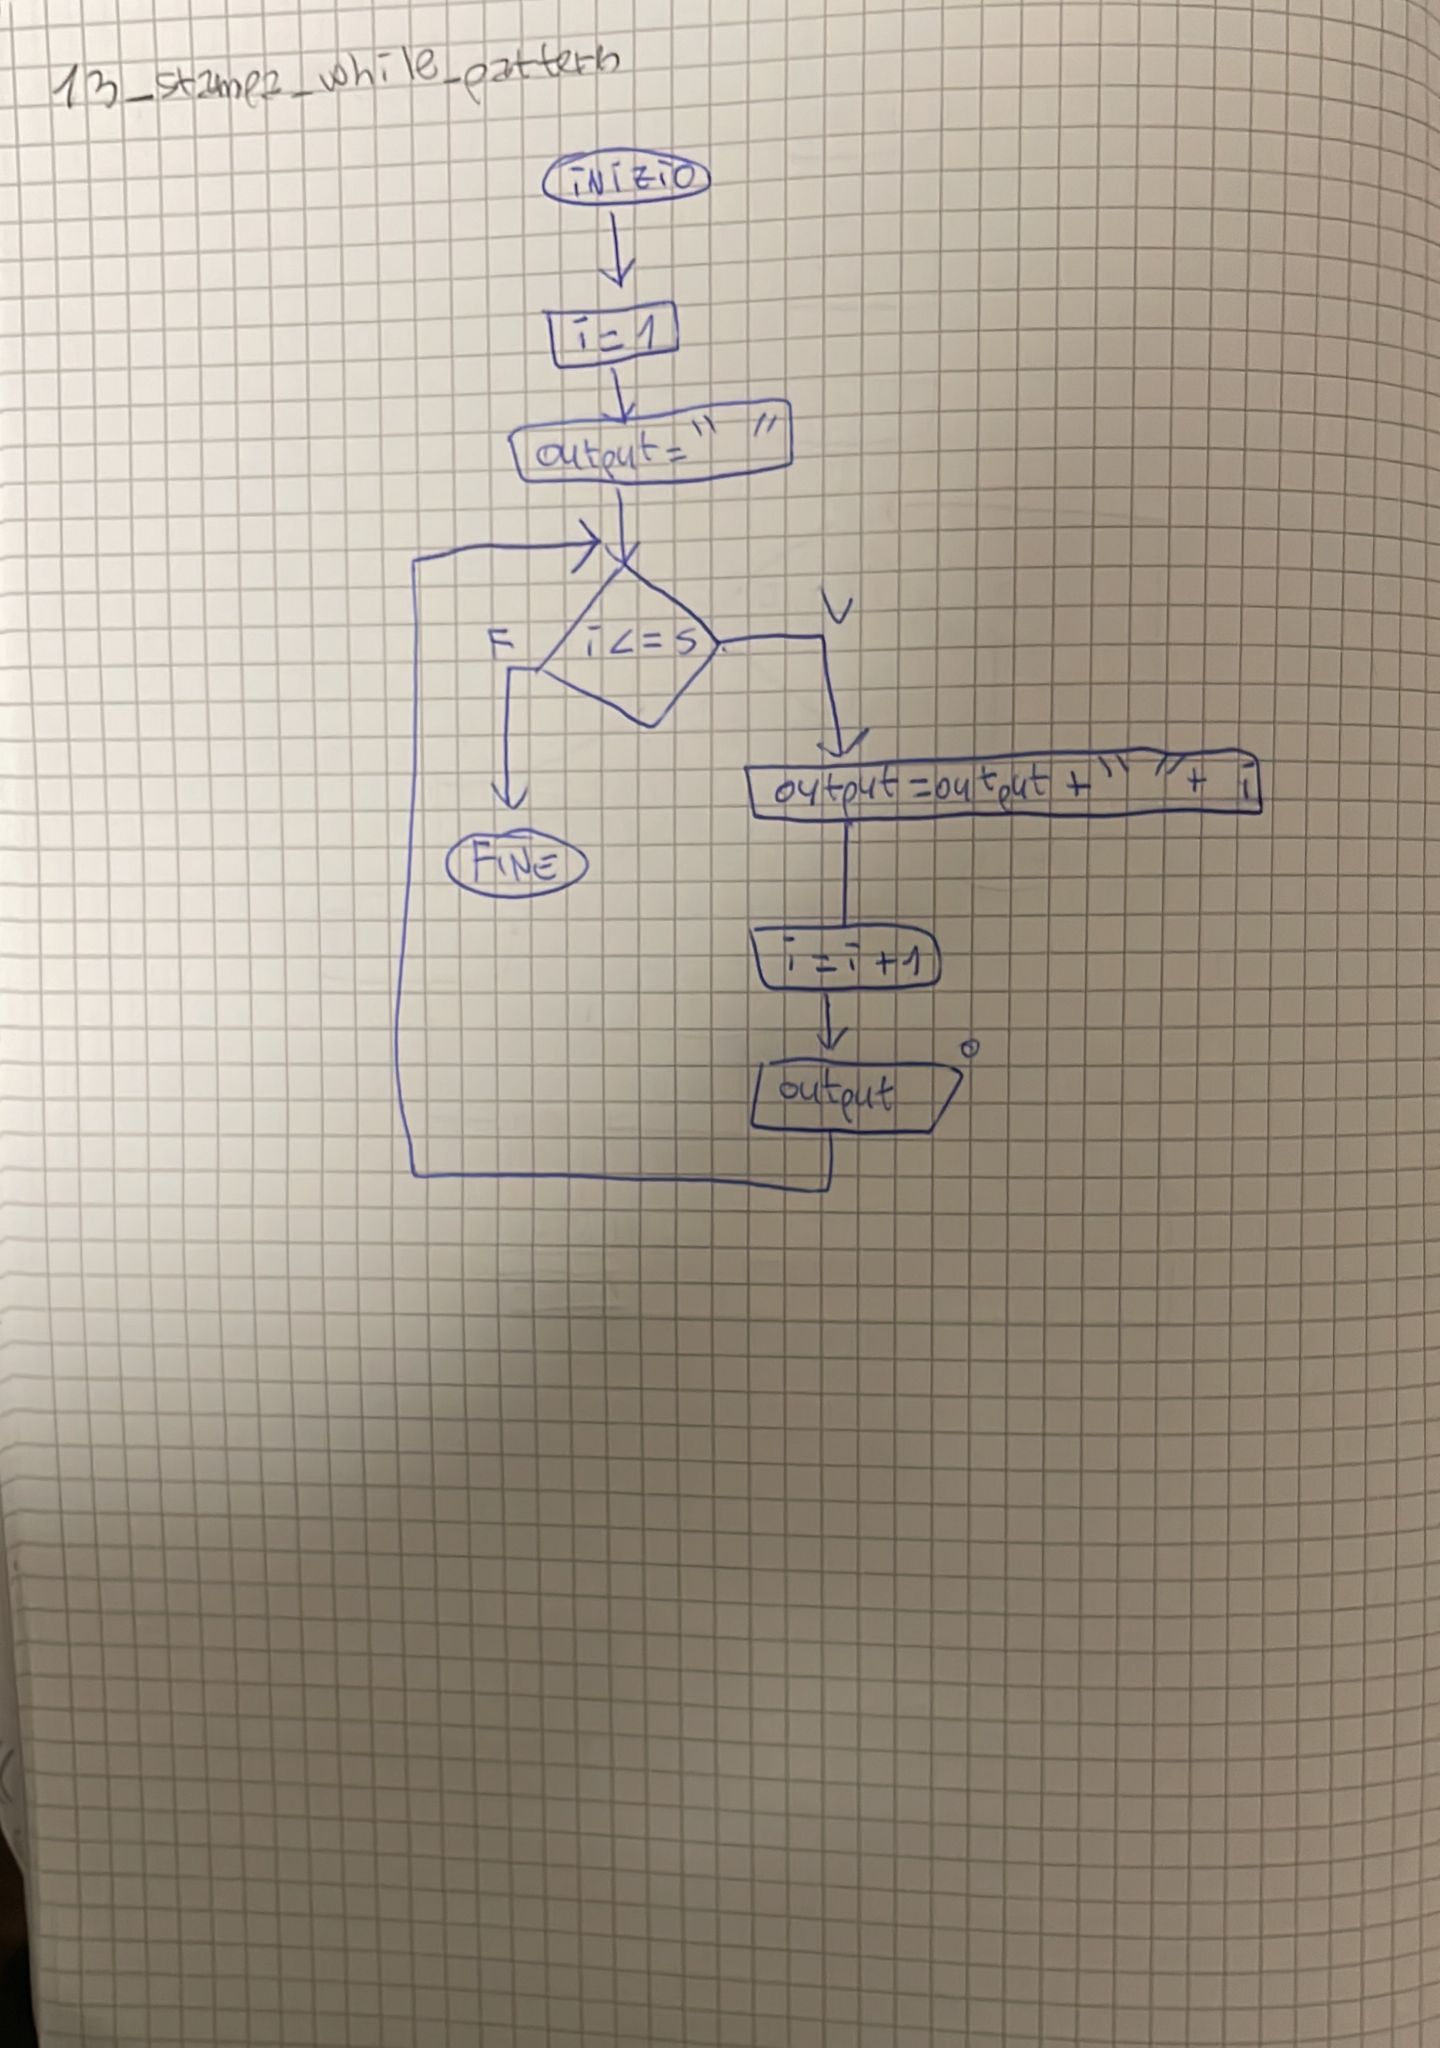 13_stampa_while_pattern
iNiZiO
i = 1
output = " "
i <= 5
F
V
output = output + " " + i
FiNE
i = i + 1
O
output